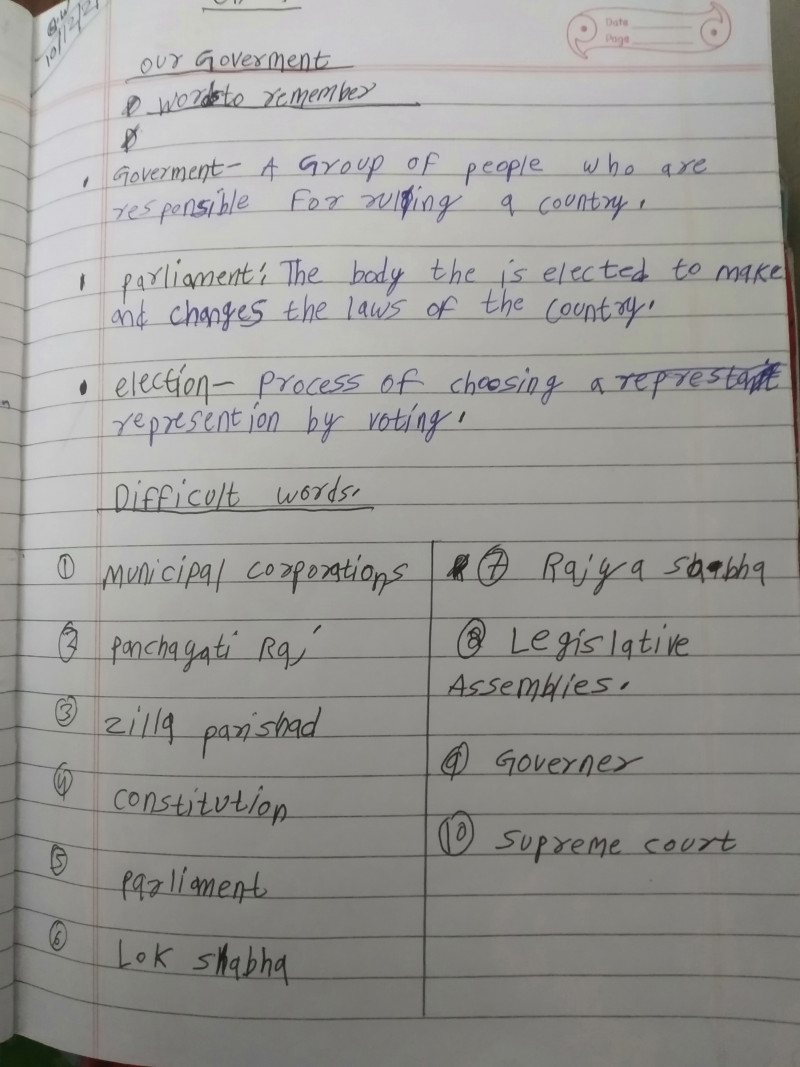 C.W
10/12/21
Date
Page
our Goverment
words to remember
Goverment- A Group of people who are
responsible For ruling a country.
parliament: The body the is elected to make
and changes the laws of the country.
election- process of choosing a
represention by voting.
Difficult words.
① municipal corporations
② panchagati Raj
③ zilla parishad
④ constitution
⑤ parliament
⑥ Lok shabha
⑦ Rajya shabha
⑧ Legislative
Assemblies.
⑨ Governer
⑩ Supreme court